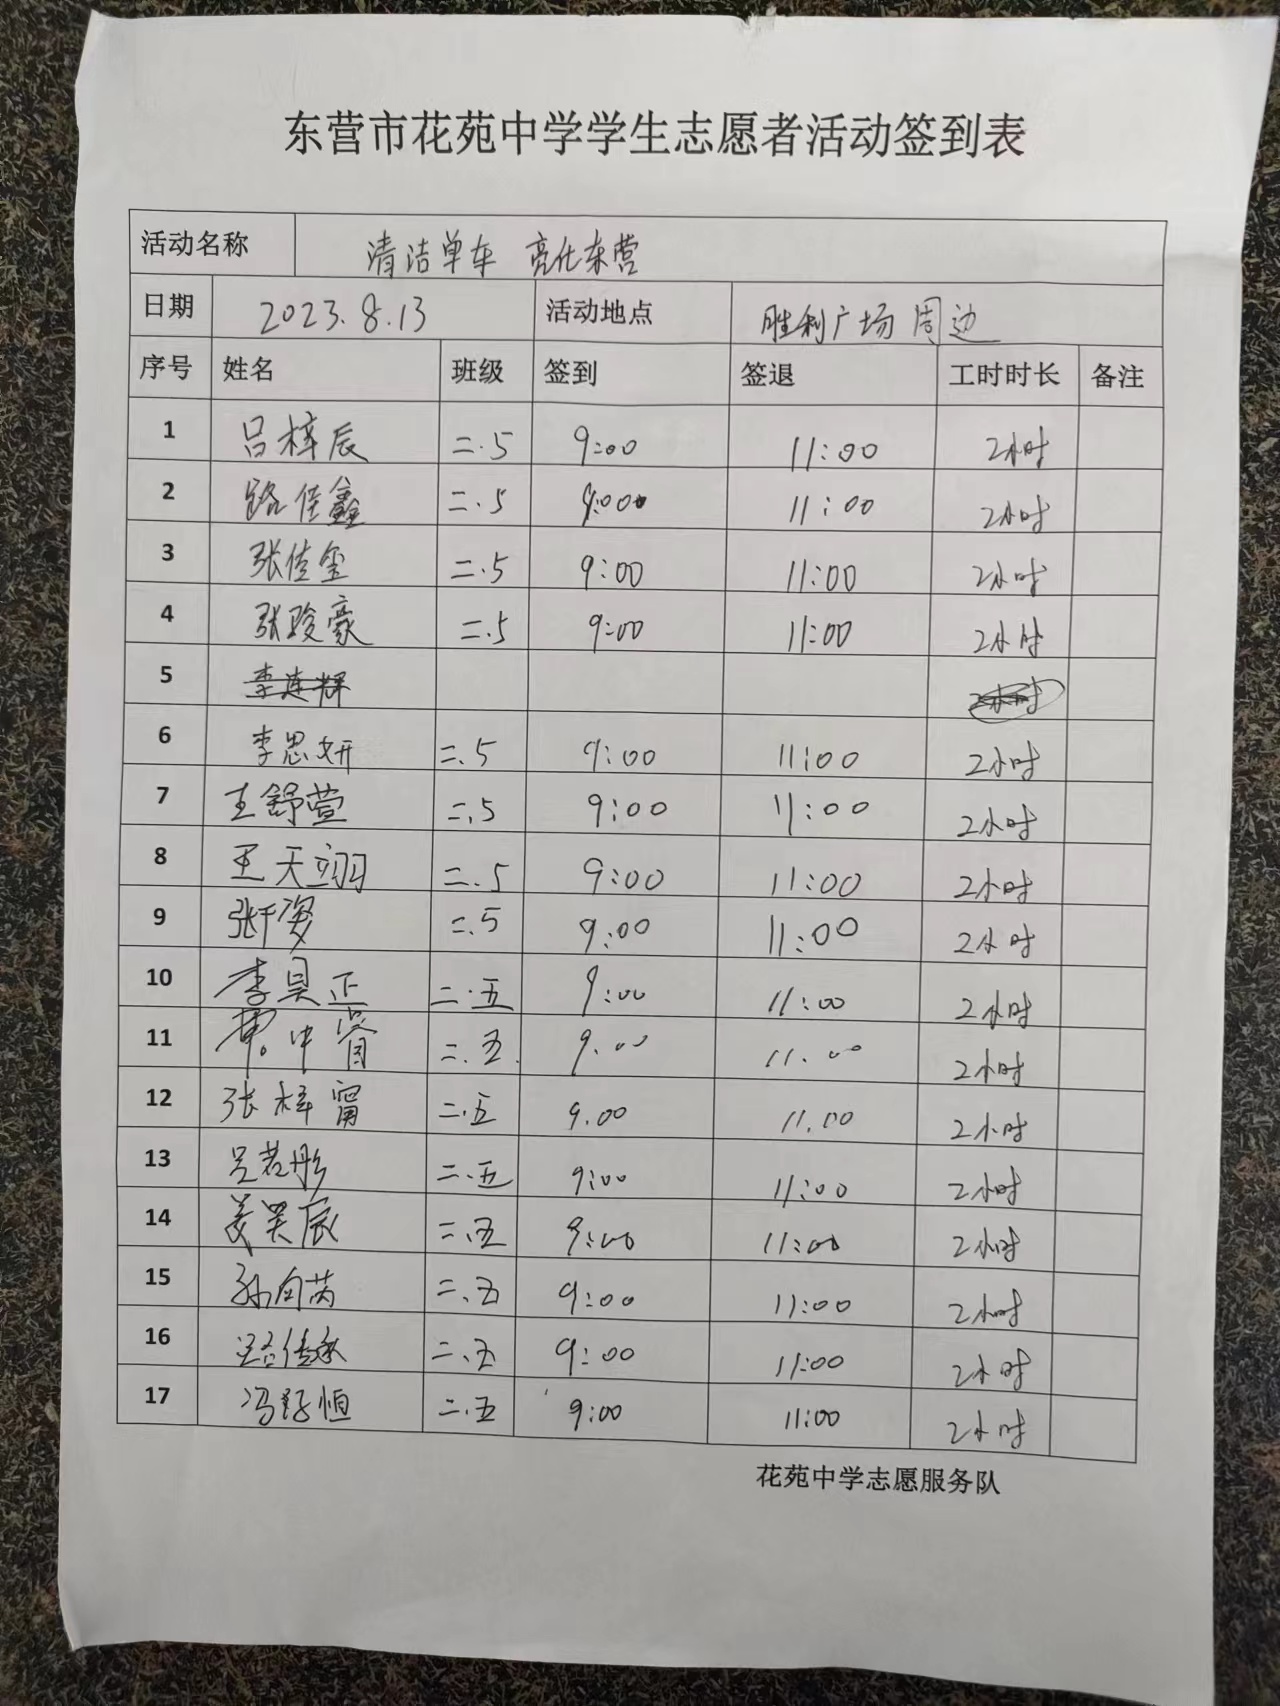 东营市花苑中学学生志愿者活动签到表
活动名称 清洁单车 亮化东营
日期 2023.8.13 活动地点 胜利广场 周边
序号 姓名 班级 签到 签退 工时时长 备注
1 吕梓辰 二.5 9:00 11:00 2小时
2 路佳鑫 二.5 9:00 11:00 2小时
3 张佳玺 二.5 9:00 11:00 2小时
4 张骏豪 二.5 9:00 11:00 2小时
5 李连辉 2小时
6 李思妍 二.5 9:00 11:00 2小时
7 王舒萱 二.5 9:00 11:00 2小时
8 王天翊 二.5 9:00 11:00 2小时
9 张千姿 二.5 9:00 11:00 2小时
10 李昊正 二.五 9:00 11:00 2小时
11 中睿 二.五. 9.00 11.00 2小时
12 张梓甯 二.五 9.00 11.00 2小时
13 吴若彤 二.五 9:00 11:00 2小时
14 姜昊辰 二.五 9:00 11:00 2小时
15 孙向芮 二.五 9:00 11:00 2小时
16 二.五 9:00 11:00 2小时
17 冯钰恒 二.五 9:00 11:00 2小时
花苑中学志愿服务队